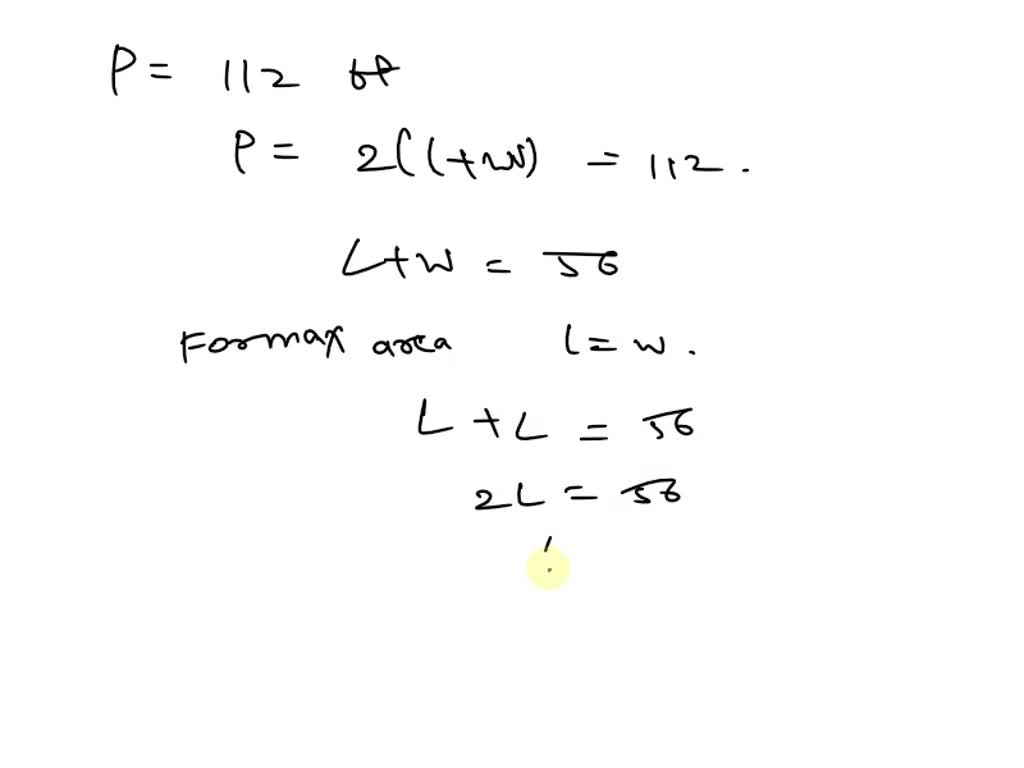 P = 112 ft
P = 2(l+w) = 112.
L+w = 56
For max area l = w.
L + L = 56
2L = 56